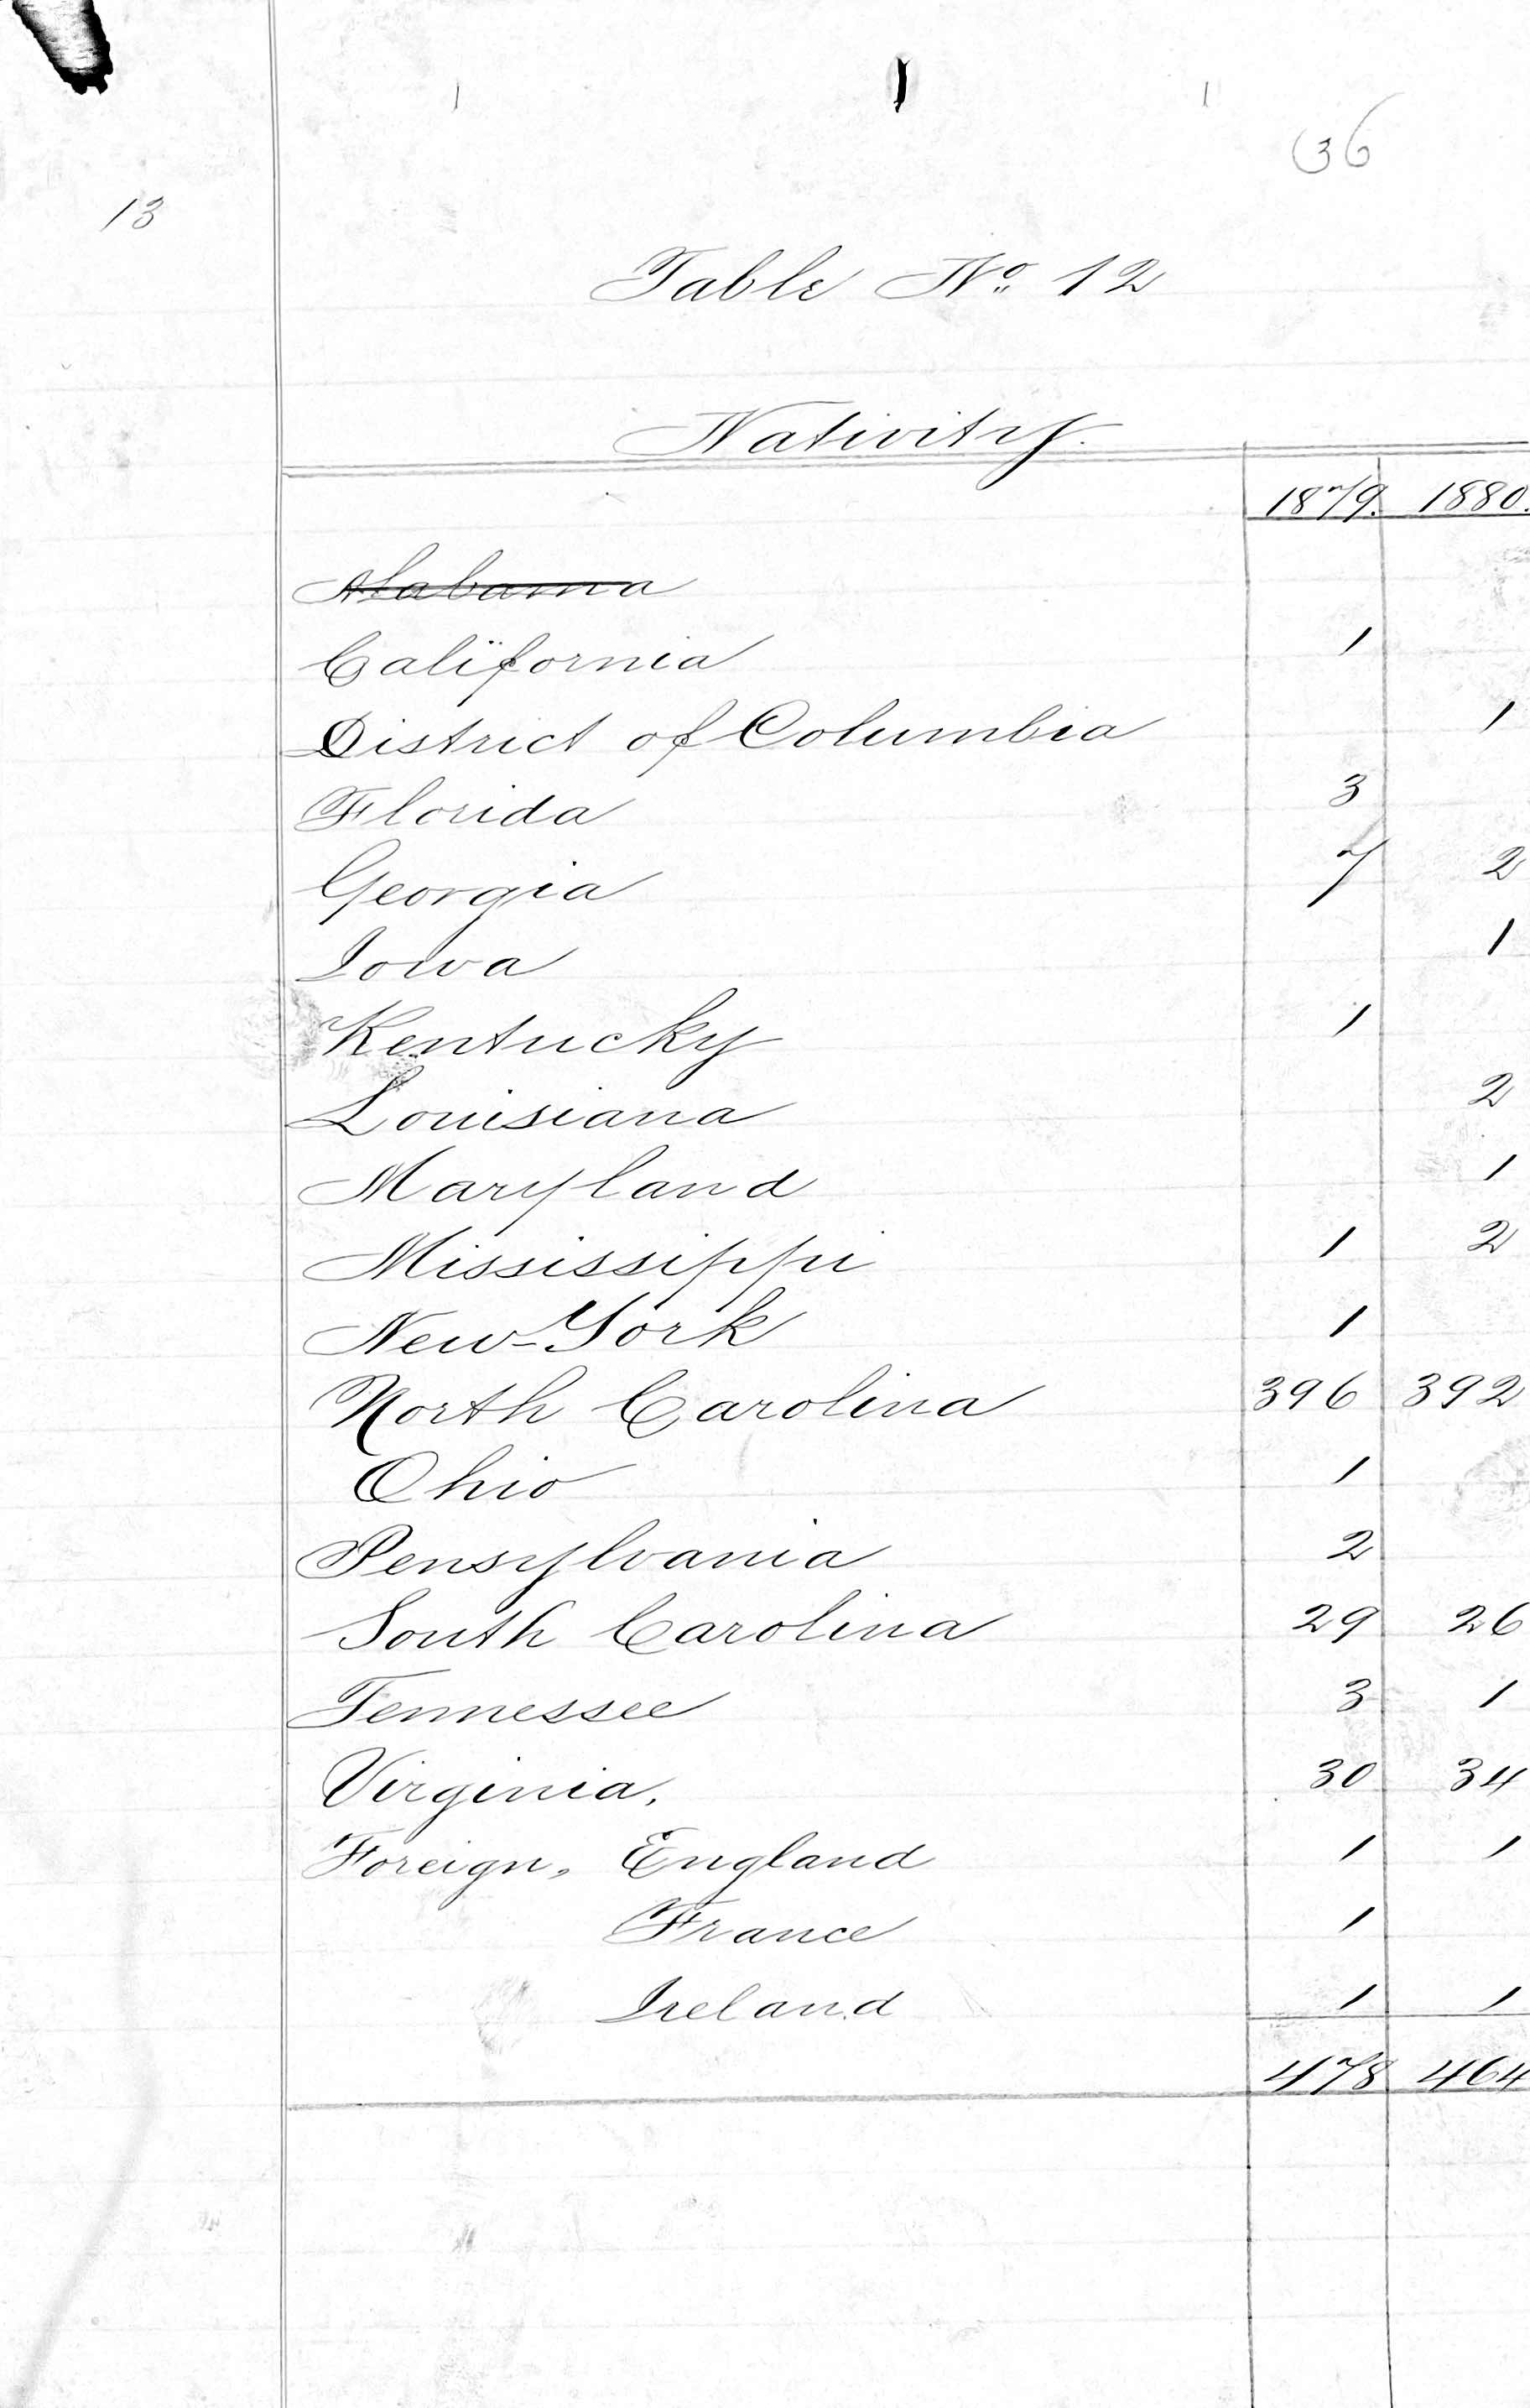 36
13
Table No. 12
Nativity.
1879. 1880.
Alabama
California 1
District of Columbia 1
Florida 3
Georgia 7 2
Iowa 1
Kentucky 1
Louisiana 2
Maryland 1
Mississippi 1 2
New-York 1
North Carolina 396 392
Ohio 1
Pensylvania 2
South Carolina 29 26
Tennessee 3 1
Virginia. 30 34
Foreign, England 1 1
France 1
Ireland 1 1
478 464